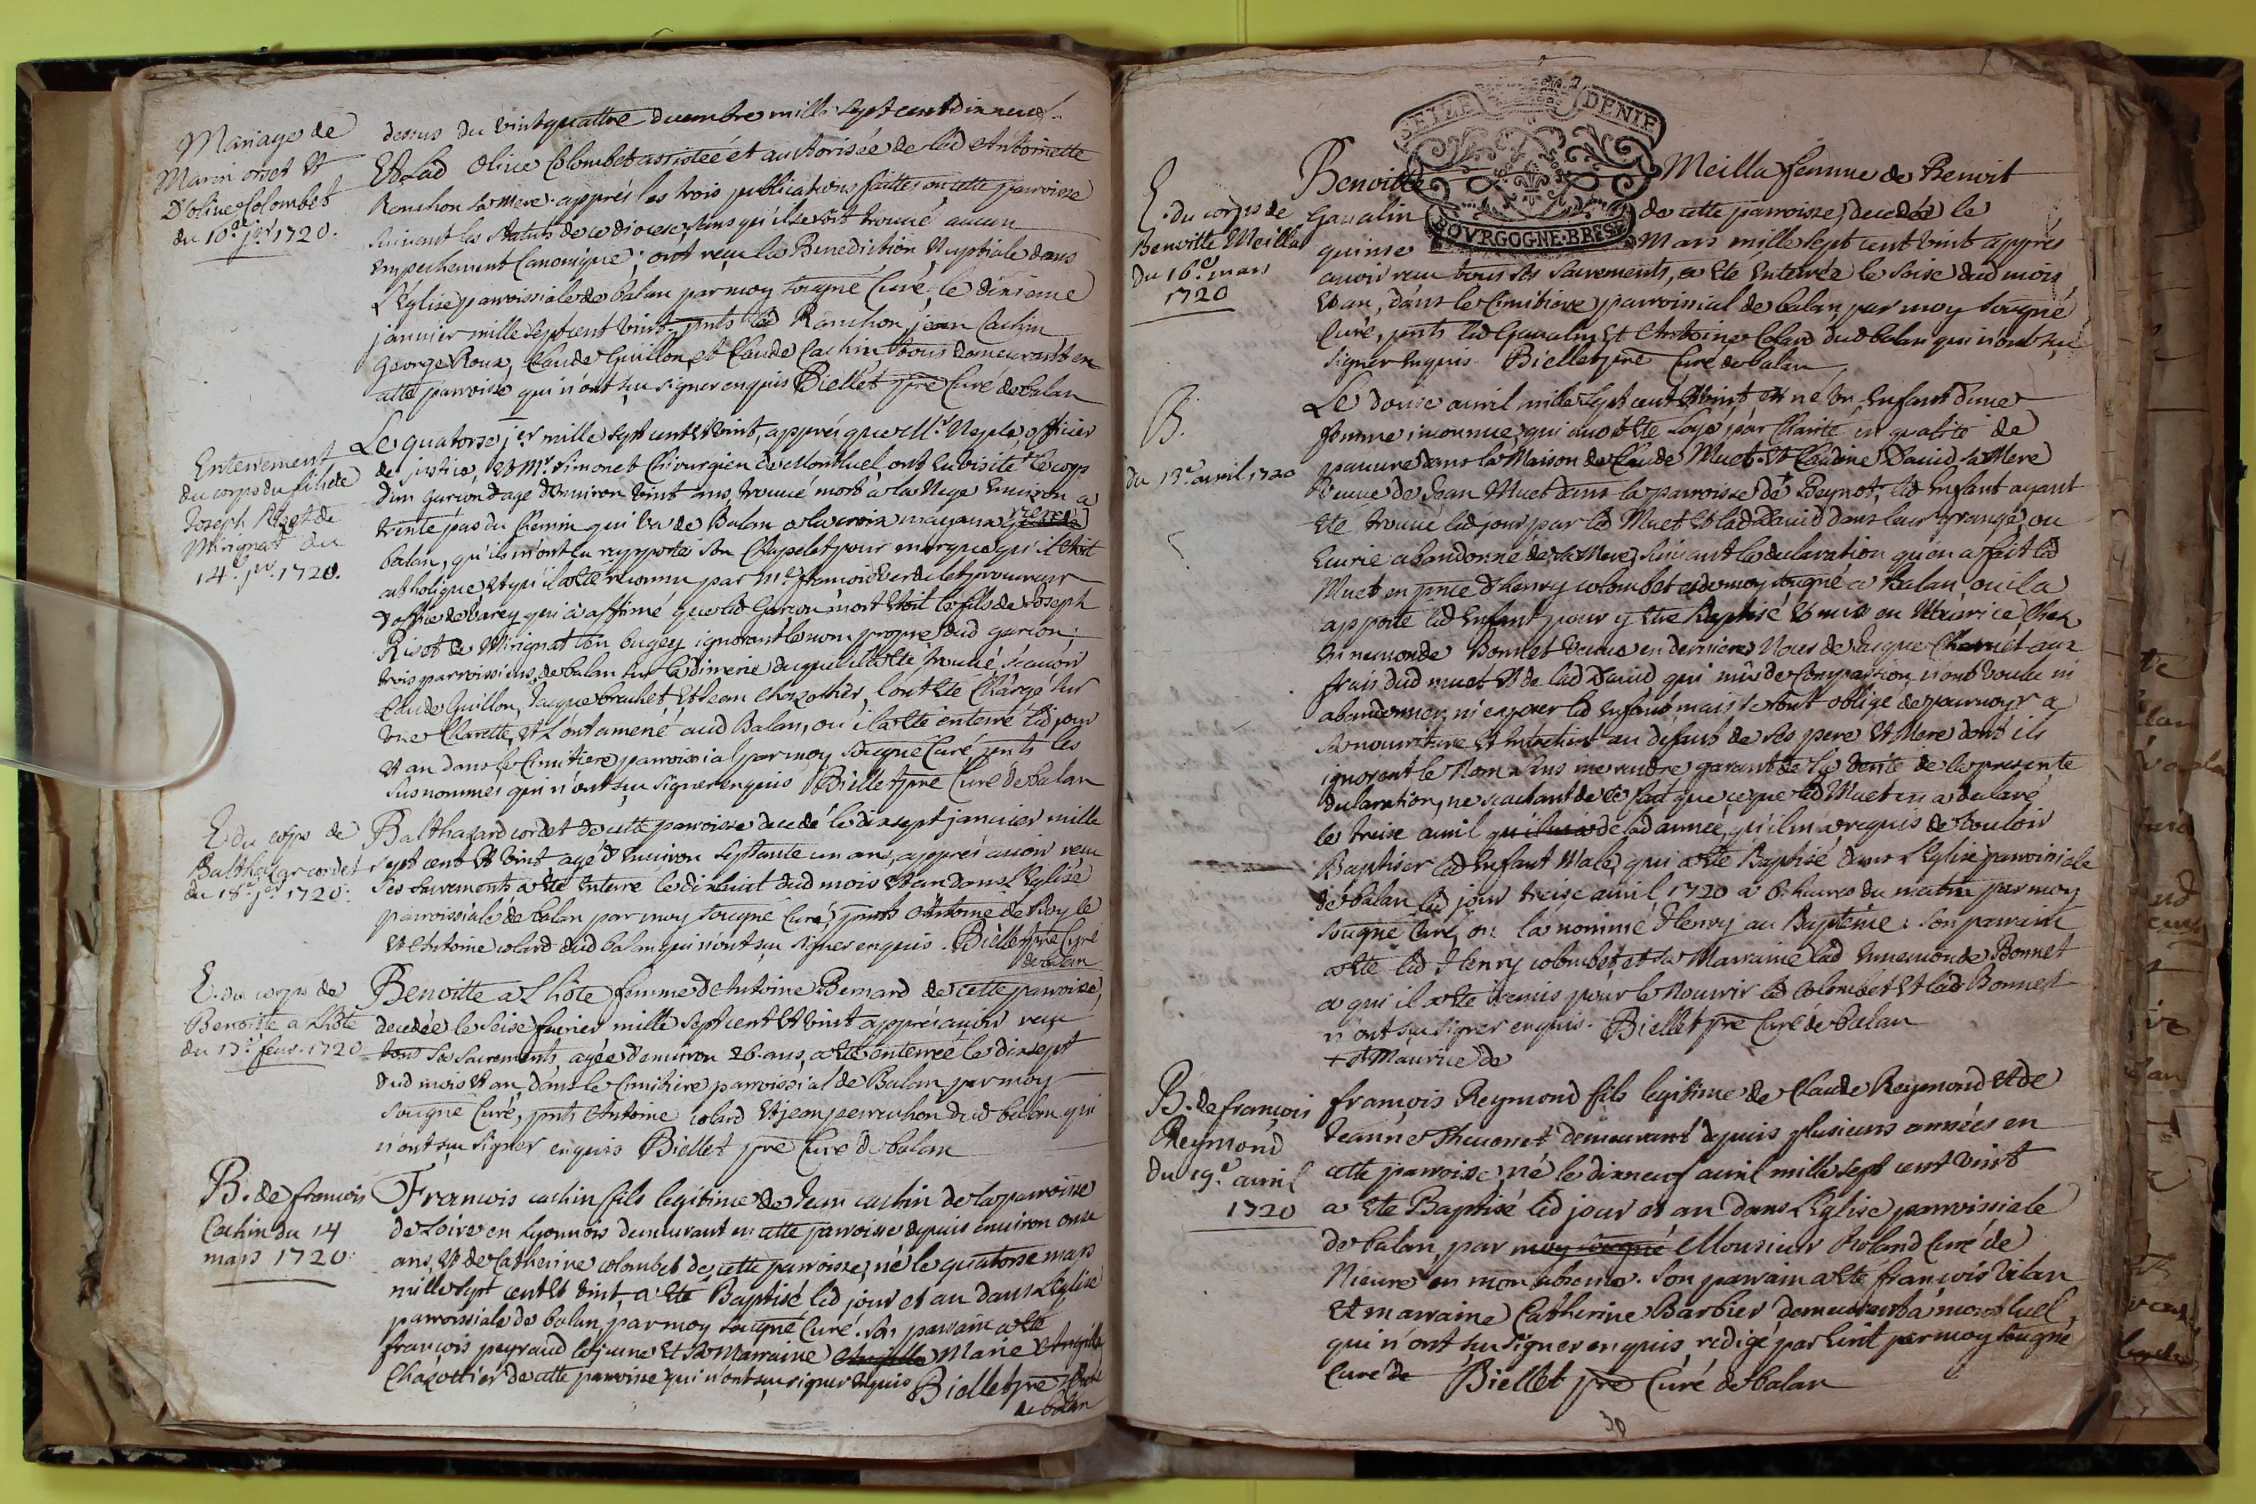 Mariage de
Marin orset et
D'olive Colombet
du 10e jer 1720.
dessus du vintquattre decembre mille sept cent dixneuf.
Et Lad Olive Colombet assistée et authorisée de lad Antoinette
Ranchon sa mere. apprés les trois publications faittes en cette parroisse
suivant les statuts de ce diocese, sans qu'il se soit trouvé aucun
empeschement Canonique; ont reçu la Benediction Nuptiale dans
L'Eglise parroissiale de balan par moy sougné Curé, le dixieme
janvier mille sept cent vint, pnts lad Ranchon, jean Cachin,
George Roux, Claude Guillon, et Claude Cachin, tous demeurants en
cette parroisse qui n'ont scu signer enquis Biellet pre Curé de balan
Enterrement
du corps du fils de
Joseph Riset de
Mirignat du
14e jer 1720.
Le quatorse jer mille sept cent et vint, apprés que Mr officier
de justice, et Mr. Simonet Chirurgien de Montluel ont eu visité le corps
d'un garcon d'age d'environ vint ans, trouvé mort à la Nege environ a
trente pas du Chemin qui va de Balan a la croix
balan, qu'ils m'ont eu rapporté son Chapelet pour marque qu'il étoit
catholique, et qu'il a été reconnu par me francois Verdelet procureur
d'office de Varey qui à affirmé que led Garçon mort étoit le fils de Joseph
Riset de Mirignat en bugey ignorant le nom propre dud garcon;
trois parroissiens de balan sur la dimerie duquel il a été trouvé scavoir
Claude Guillon, Jacque et Jean Chazottier, l'ont été Chargé sur
une Charette, et L'ont amené aud Balan, ou il a été enterré led jour
et an dans le Cimitiere parroissial par moy Sougné Curé pnts les
susnommés qui n'ont scu signer enquis Biellet pre Curé de balan
E du corps de
Balthazar cordet
du 18e jer 1720.
Balthazard cordet de cette parroisse decedé le dixsept janvier mille
sept cent et vint agé d'environ septante un ans, apprés avoir recu
ses sacrements a été enterré le dixhuit dud mois et an dans l'Eglise
parroissiale de balan par moy sougné Curé, pnts Antoine de Boyle
et Antoine colard dud balan qui n'ont scu signer enquis. Biellet pre Curé
de balan
E. du corps de
Benoiste a Lhôte
du 17e fevr. 1720
Benoitte a L'hôte femme d'Antoine Bernard de cette parroisse,
decedée le seise fevrier mille sept cent et vint apprés avoir recu
tous ses sacrements agée d'environ 26. ans, a été enterrée le dixsept
dud mois et an, dans le Cimitiere parroissial de Balan par moy
Sougné Curé, pnts Antoine colard et jean perruchon dud balan qui
n'ont scu signer enquis Biellet pre Curé de balan
B. de francois
Cachin du 14
mars 1720.
Francois cachin fils legitime de Jean cachin de la parroisse
de Loire en Lyonnois demeurant en cette parroisse depuis environ onse
ans, et de Catherine colombet de cette parroisse, né le quatorse mars
mille sept cent et vint, a été Baptisé led jour et an dans L'Eglise
parroissiale de balan, par moy sougné Curé. son parrain a été
francois peyraud le jeune et sa Marraine Marie
Chazottier de cette parroisse qui n'ont scu signer enquis Biellet pre Curé
de balan
SEIZE DENIE
BOVRGOGNE·BRESSE
E. du corps de
Benoitte Meilla
du 16e mars
1720
Benoitte Meilla femme de Benoit
Gavalin de cette parroisse, decedée le
quinse mars mille sept cent vint apprés
avoir recu tous ses sacrements, a été enterrée le seise dud mois
et an, dans le Cimitiere parroissial de balan, par moy sougné
Curé, pnts led Gavalin et Antoine Colard dud balan qui n'ont scu
signer enquis. Biellet pre Curé de balan
B.
du 13e avril 1720
Le douse avril mille sept cent et vint, est né un Enfant d'une
femme inconnue, qui avoit été Logé par Charité en qualité de
pauvre dans la Maison de Claude Muet et Claudine David sa Mere
veuve de Jean Muet dans la parroisse de Beynot, led enfant ayant
été trouvé led jour par led Muet et lad David dans leur grange ou
Ecurie abandonné de sa Mere, suivant la declaration qu'en a fait led
Muet en pnce d'henry colombet et de moy sougné a Balan ou il a
apporté led Enfant pour y etre Baptisé et mis en Nourrice Chez
Ennemonde Bonnet veuve en dernieres Noces de Jacque Charvet aux
frais dud muet et de lad David qui mûs de Compassion n'ont voulu ni
abandonner, ni exposer led enfant, mais se sont obligé de pourvoyr a
sa nourriture et entretient au defaut de ses pere et Mere dont ils
ignorent le Nom sans me rendre garant de la verité de la presente
declaration, ne scachant de ce fait que ce que led Muet m'a declaré
le treise avril de lad année, qu'il m'a requis de vouloir
Baptiser led Enfant Male, qui a été Baptisé dans L'Eglise parroissiale
de balan led jour treise avril 1720 a 6. heures du matin par moy
Sougné Curé, on l'a nommé Henry au Baptême: son parrain
a été led Henry colombet, et sa Marraine lad Ennemonde Bonnet
a qui il a été remis pour le Nourrir led Colombet et lad Bonnet
n'ont scu signer enquis. Biellet pre Curé de balan
+ st Maurice de
B. de françois
Reymond
du 19e avril
1720
françois Reymond fils legitime de Claude Reymond et de
Jeanne Thevenet demeurant depuis plusieurs années en
cette parroisse, né le dixneuf avril mille sept cent vint
a été Baptisé led jour et an dans L'Eglise parroissiale
de balan, par moy sougné Monsieur Roland Curé de
Nieure en mon absence. son parrain a été francois Vilan
et marraine Catherine Barbier demeurant a montluel,
qui n'ont scu signer enquis, redigé par Ecrit par moy sougné
Curé de Biellet pre Curé de balan
30